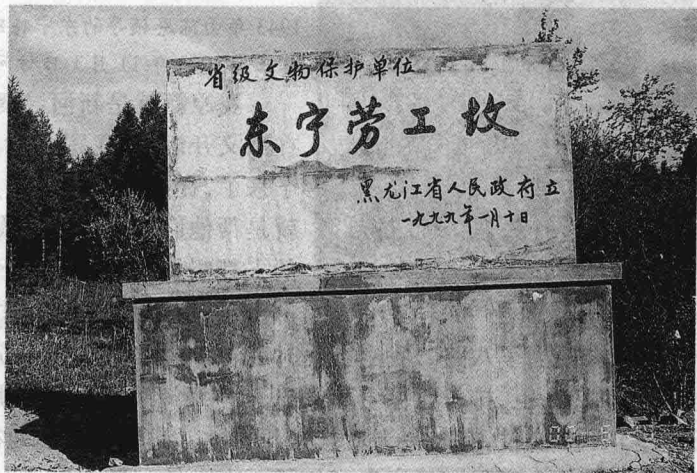 省级文物保护单位
东宁劳工坟
黑龙江省人民政府立
一九九九年一月十日